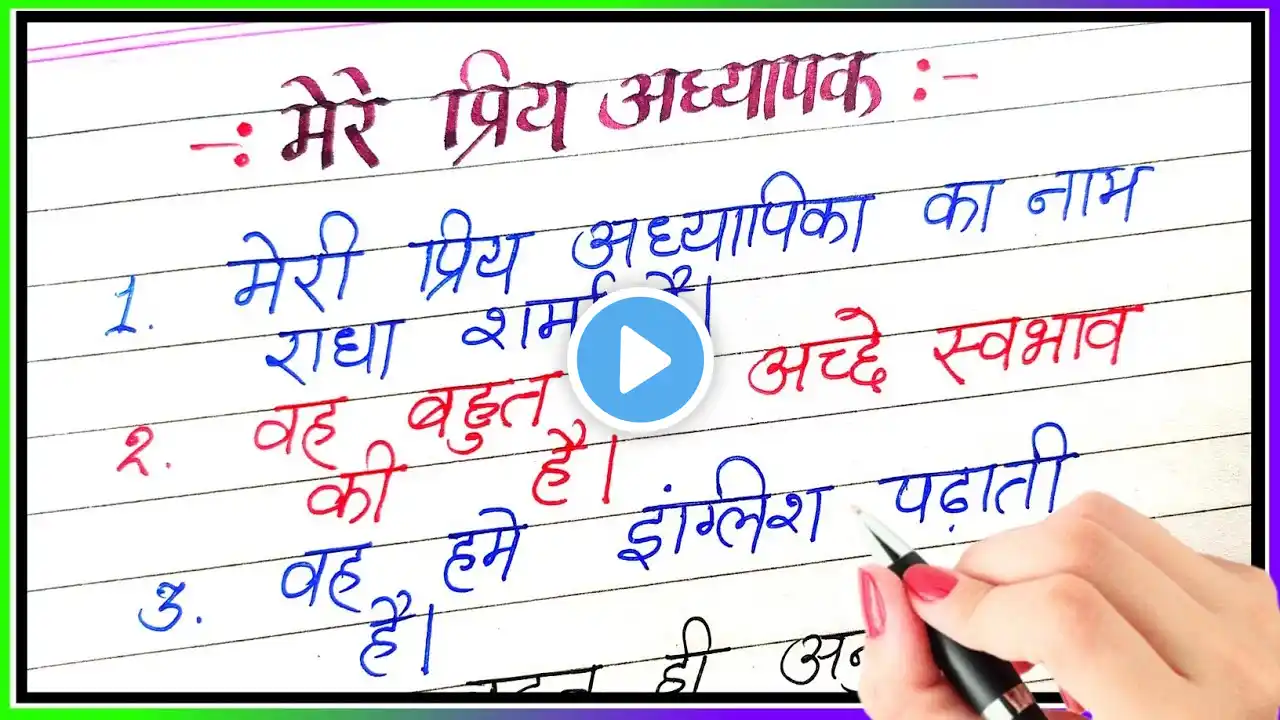 -: मेरे प्रिय अध्यापक :-
1. मेरी प्रिय अध्यापिका का नाम
राधा शर्मा है।
२. वह बहुत अच्छे स्वभाव
की है।
३. वह हमे इंग्लिश पढ़ाती
है।
ही